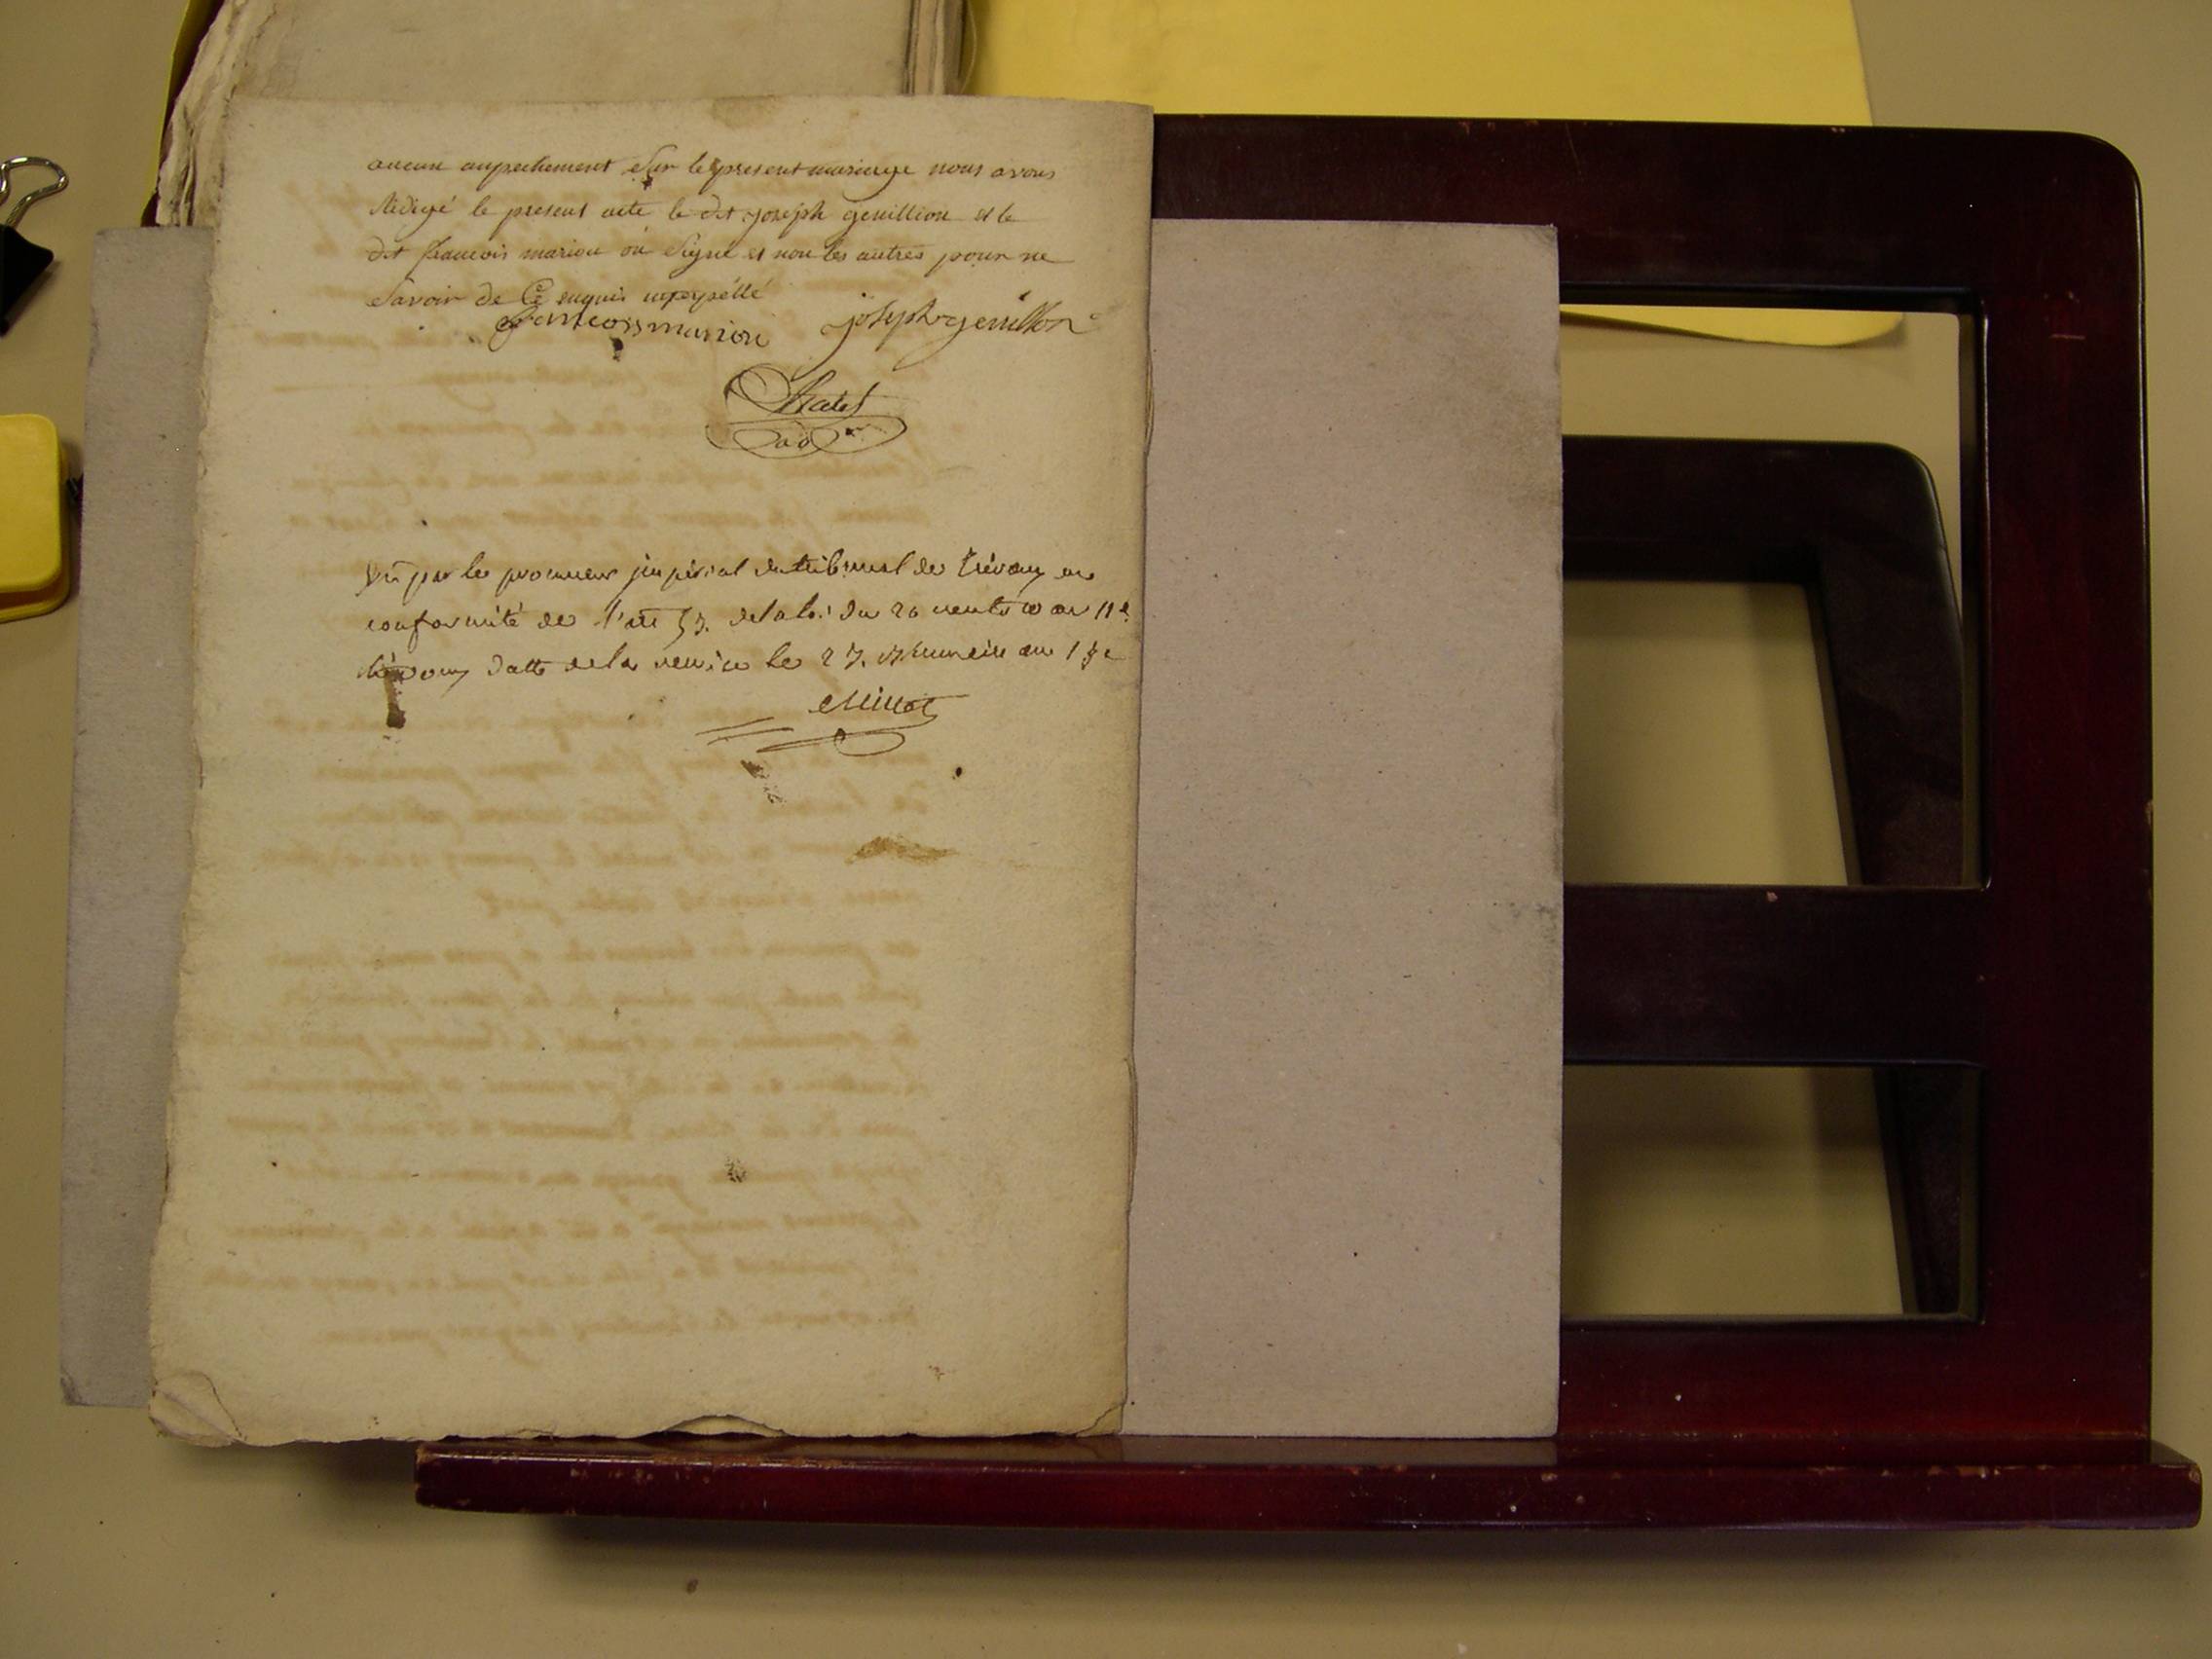 aucun anpechement Sur le present mariage nous avons
Rédigé le present acte le dit joseph genillion et le
dit francois marion on Signé et non les autres pour ne
Savoir de Ce enquis
francois marion joseph genillon
vu par le procureur jmpérial du tribunal de trévoux en
conformité de l'art 53. de la loi du 20 an 11e
trévoux datte de la remise le 27. an 13e